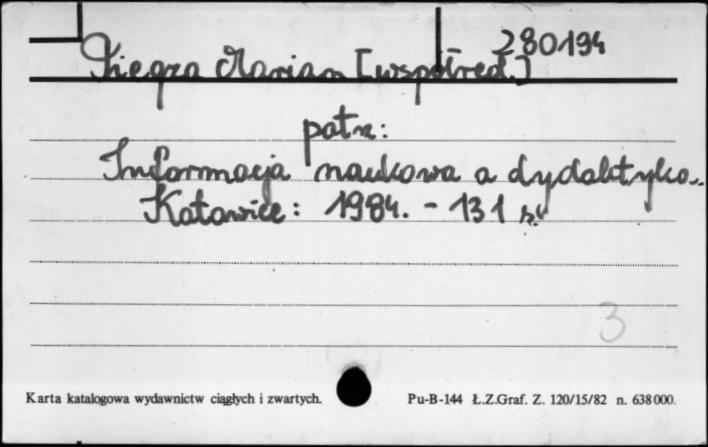 280194
Marian [współred.]
patrz:
Informacja naukowa a dydaktyka..
Katowice: 1984. - 131 s.
3
Karta katalogowa wydawnictw ciągłych i zwartych.
Pu-B-144 Ł.Z.Graf. Z. 120/15/82 n. 638000.